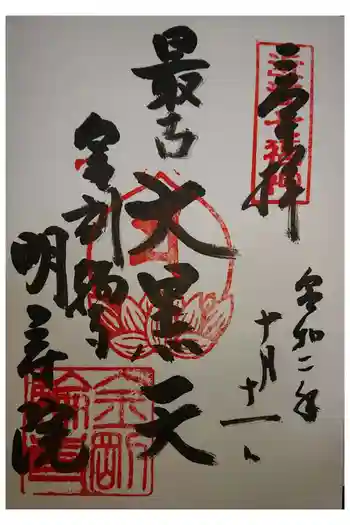 奉拝
令和二年
十月十一日
最古
大黒天
金剛輪寺
明寿院
金剛
輪寺